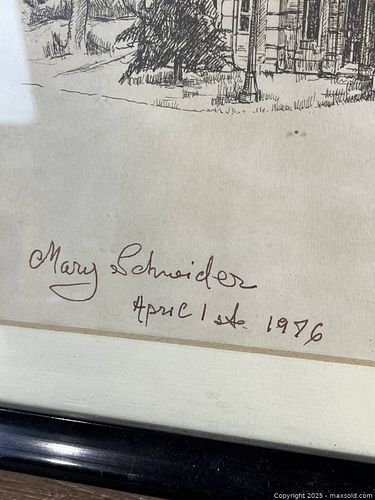 Mary Schneider
April 1st. 1976
Copyright 2025 - maxsold.com